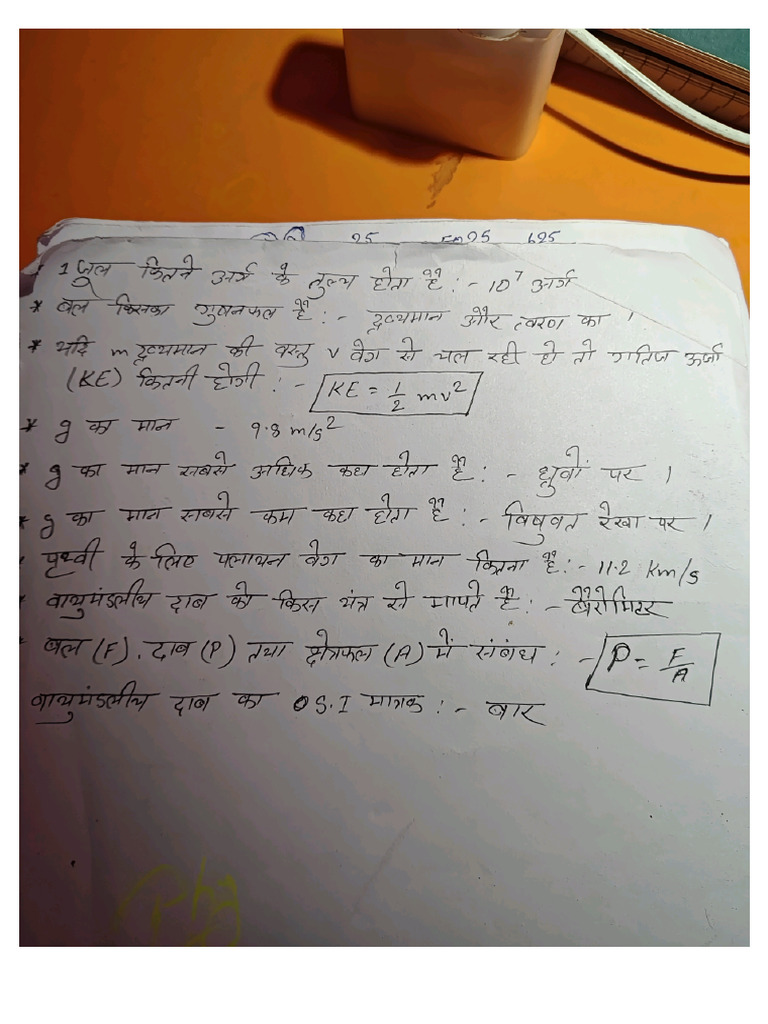 25 25 625
* 1 जुल कितने अर्ग के तुल्य होता है :- 10⁷ अर्ग
* बल किसका गुणनफल है :- द्रव्यमान और त्वरण का ।
* यदि m द्रव्यमान की वस्तु v वेग से चल रही हो तो गतिज ऊर्जा
(KE) कितनी होगी :- KE = 1/2 mv²
* g का मान - 9.8 m/s²
* g का मान सबसे अधिक कहा होता है :- ध्रुवों पर ।
* g का मान सबसे कम कहा होता है :- विषुवत रेखा पर ।
* पृथ्वी के लिए पलायन वेग का मान कितना है :- 11.2 Km/s
* वायुमंडलीय दाब को किस यंत्र से मापते है :- बैरोमिटर
* बल (F), दाब (P) तथा क्षेत्रफल (A) में संबंध :- P = F/A
वायुमंडलीय दाब का S.I मात्रक :- बार
Phy